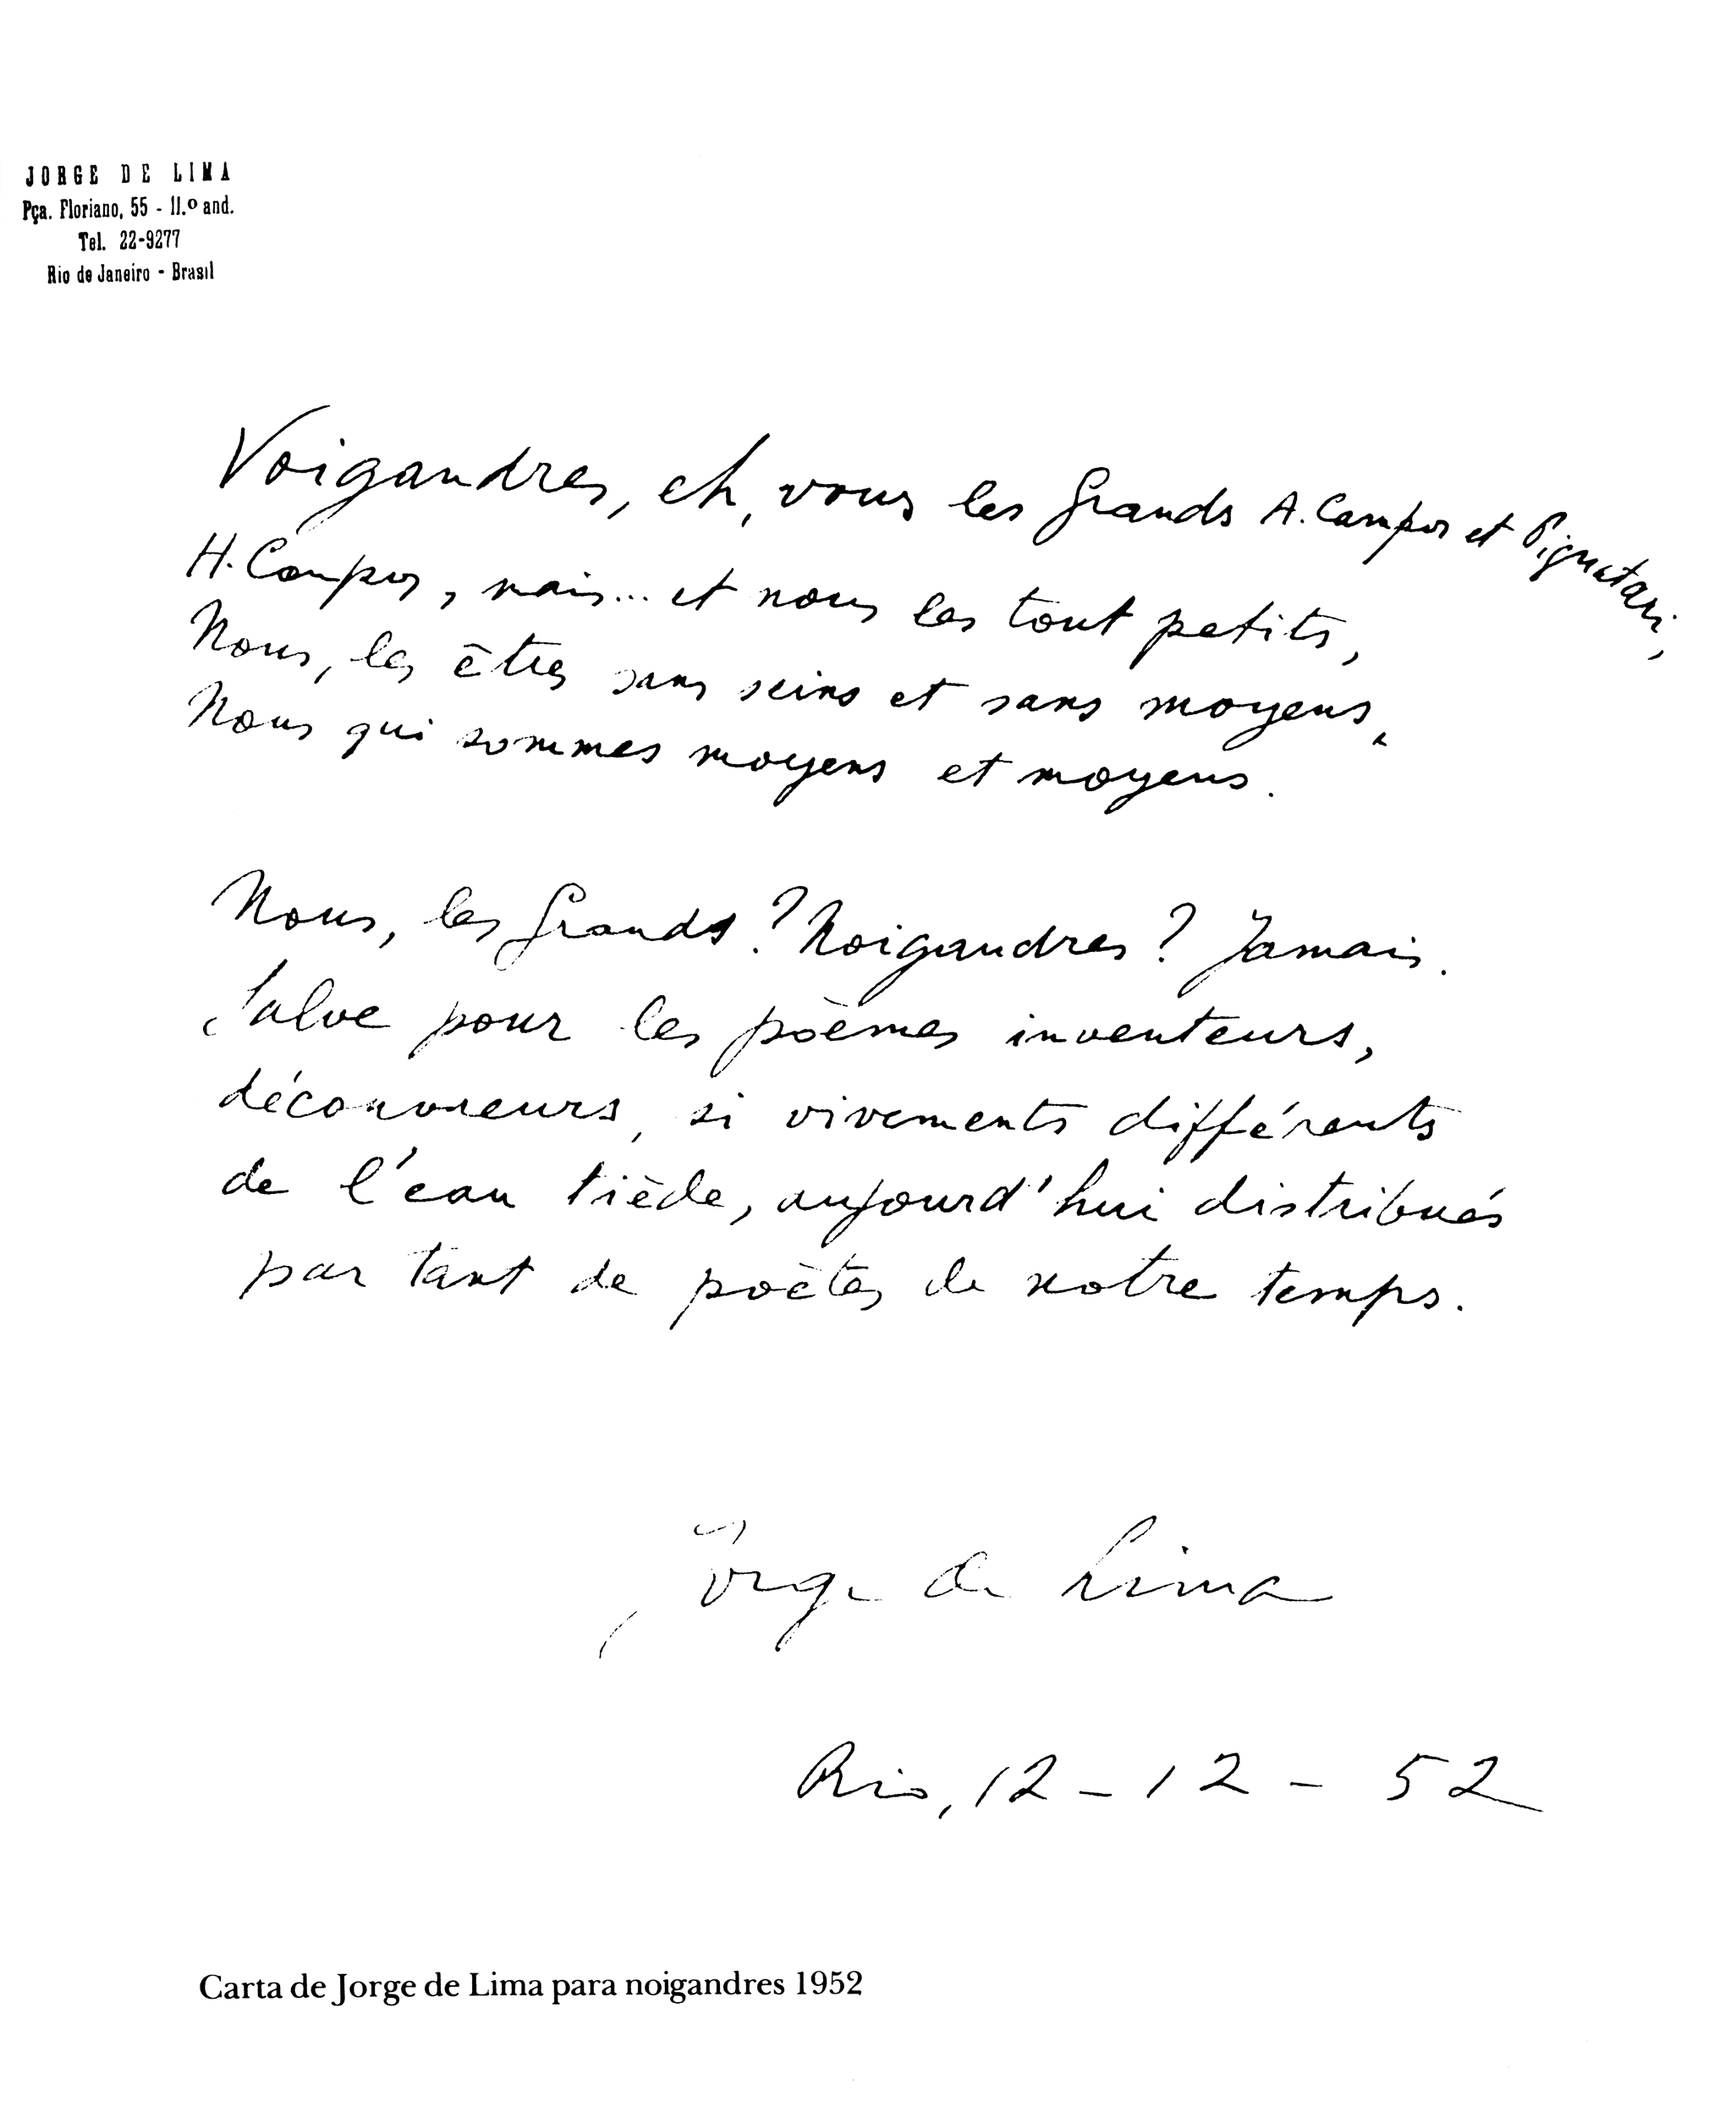 JORGE DE LIMA
Pça. Floriano, 55 - 11.º and.
Tel. 22-9277
Rio de Janeiro - Brasil
Voigandres, eh, vous les Grands A. Campos et Pignatari,
H. Campos, mais... et nous les tout petits,
Nous, les êtres sans seins et sans moyens,
Nous qui sommes moyens et moyens.
Nous, les Grands? Noigandres? Jamais.
Salve pour les poèmes inventeurs,
découvreurs, si vivements différents
de l'eau tiède, aujourd'hui distribués
par tant de poètes de notre temps.
Jorge de Lima
Rio, 12 - 12 - 52
Carta de Jorge de Lima para noigandres 1952